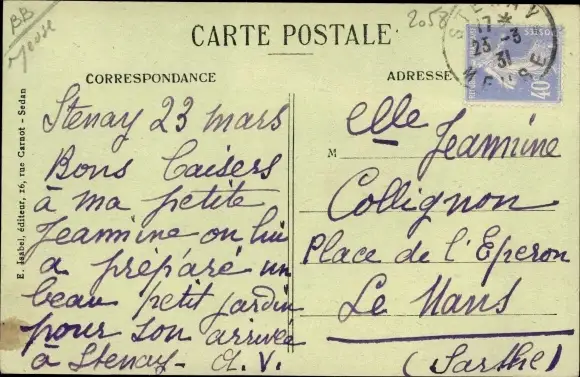 BB
Meuse
2058
CARTE POSTALE
STENAY
17 *
23 -3
31
MEUSE
POSTES
40c
CORRESPONDANCE
ADRESSE
Stenay 23 mars
Bons baisers
à ma petite
Jeannine on lui
a préparé un
beau petit jardin
pour son arrivée
à Stenay- A.V.
M elle Jeannine
Collignon
Place de l'Eperon
Le Mans
(Sarthe)
E. Isabel, éditeur, 26, rue Carnot - Sedan